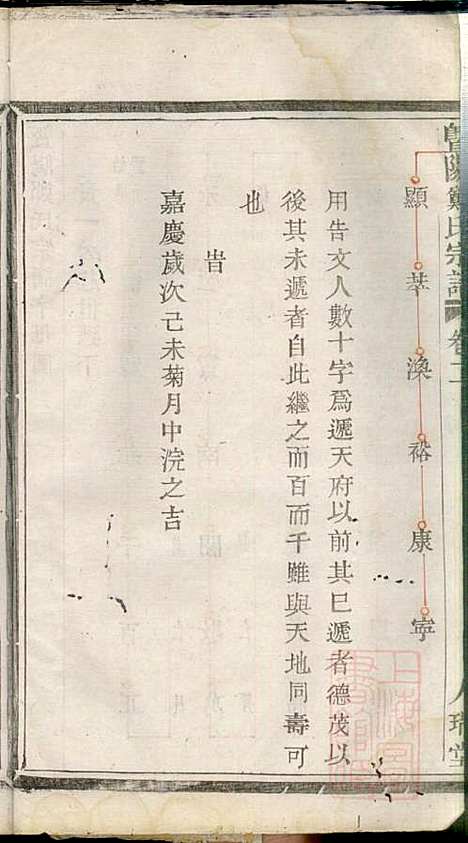 暨陽鄭氏宗譜 卷二
顯萃渙裕康寧
用告文人數十字爲遞天府以前其巳遞者德茂以
後其未遞者自此繼之而百而千雖與天地同壽可
也
旹
嘉慶歲次己未菊月中浣之吉